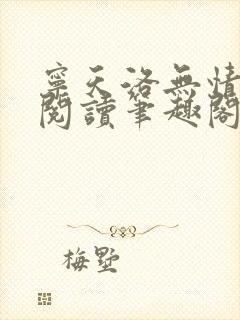 寧天洛無情
閱讀筆趣閣
梅墅